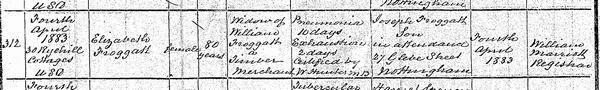 USD
Nottingham
312
Fourth
April
1883
30 Ryehill
Cottages
USD
Elizabeth
Froggath
Female
80
years
Widow of
William
Froggath
a
Timber
Merchant
Pneumonia
10 days
Exhaustion
2 days
Certified by
W. Hunter M.D
Joseph Froggath
Son
in attendance
27 Glebe Street
Nottingham
Fourth
April
1883
William
Marriott
Registrar
Fourth
Tubercular